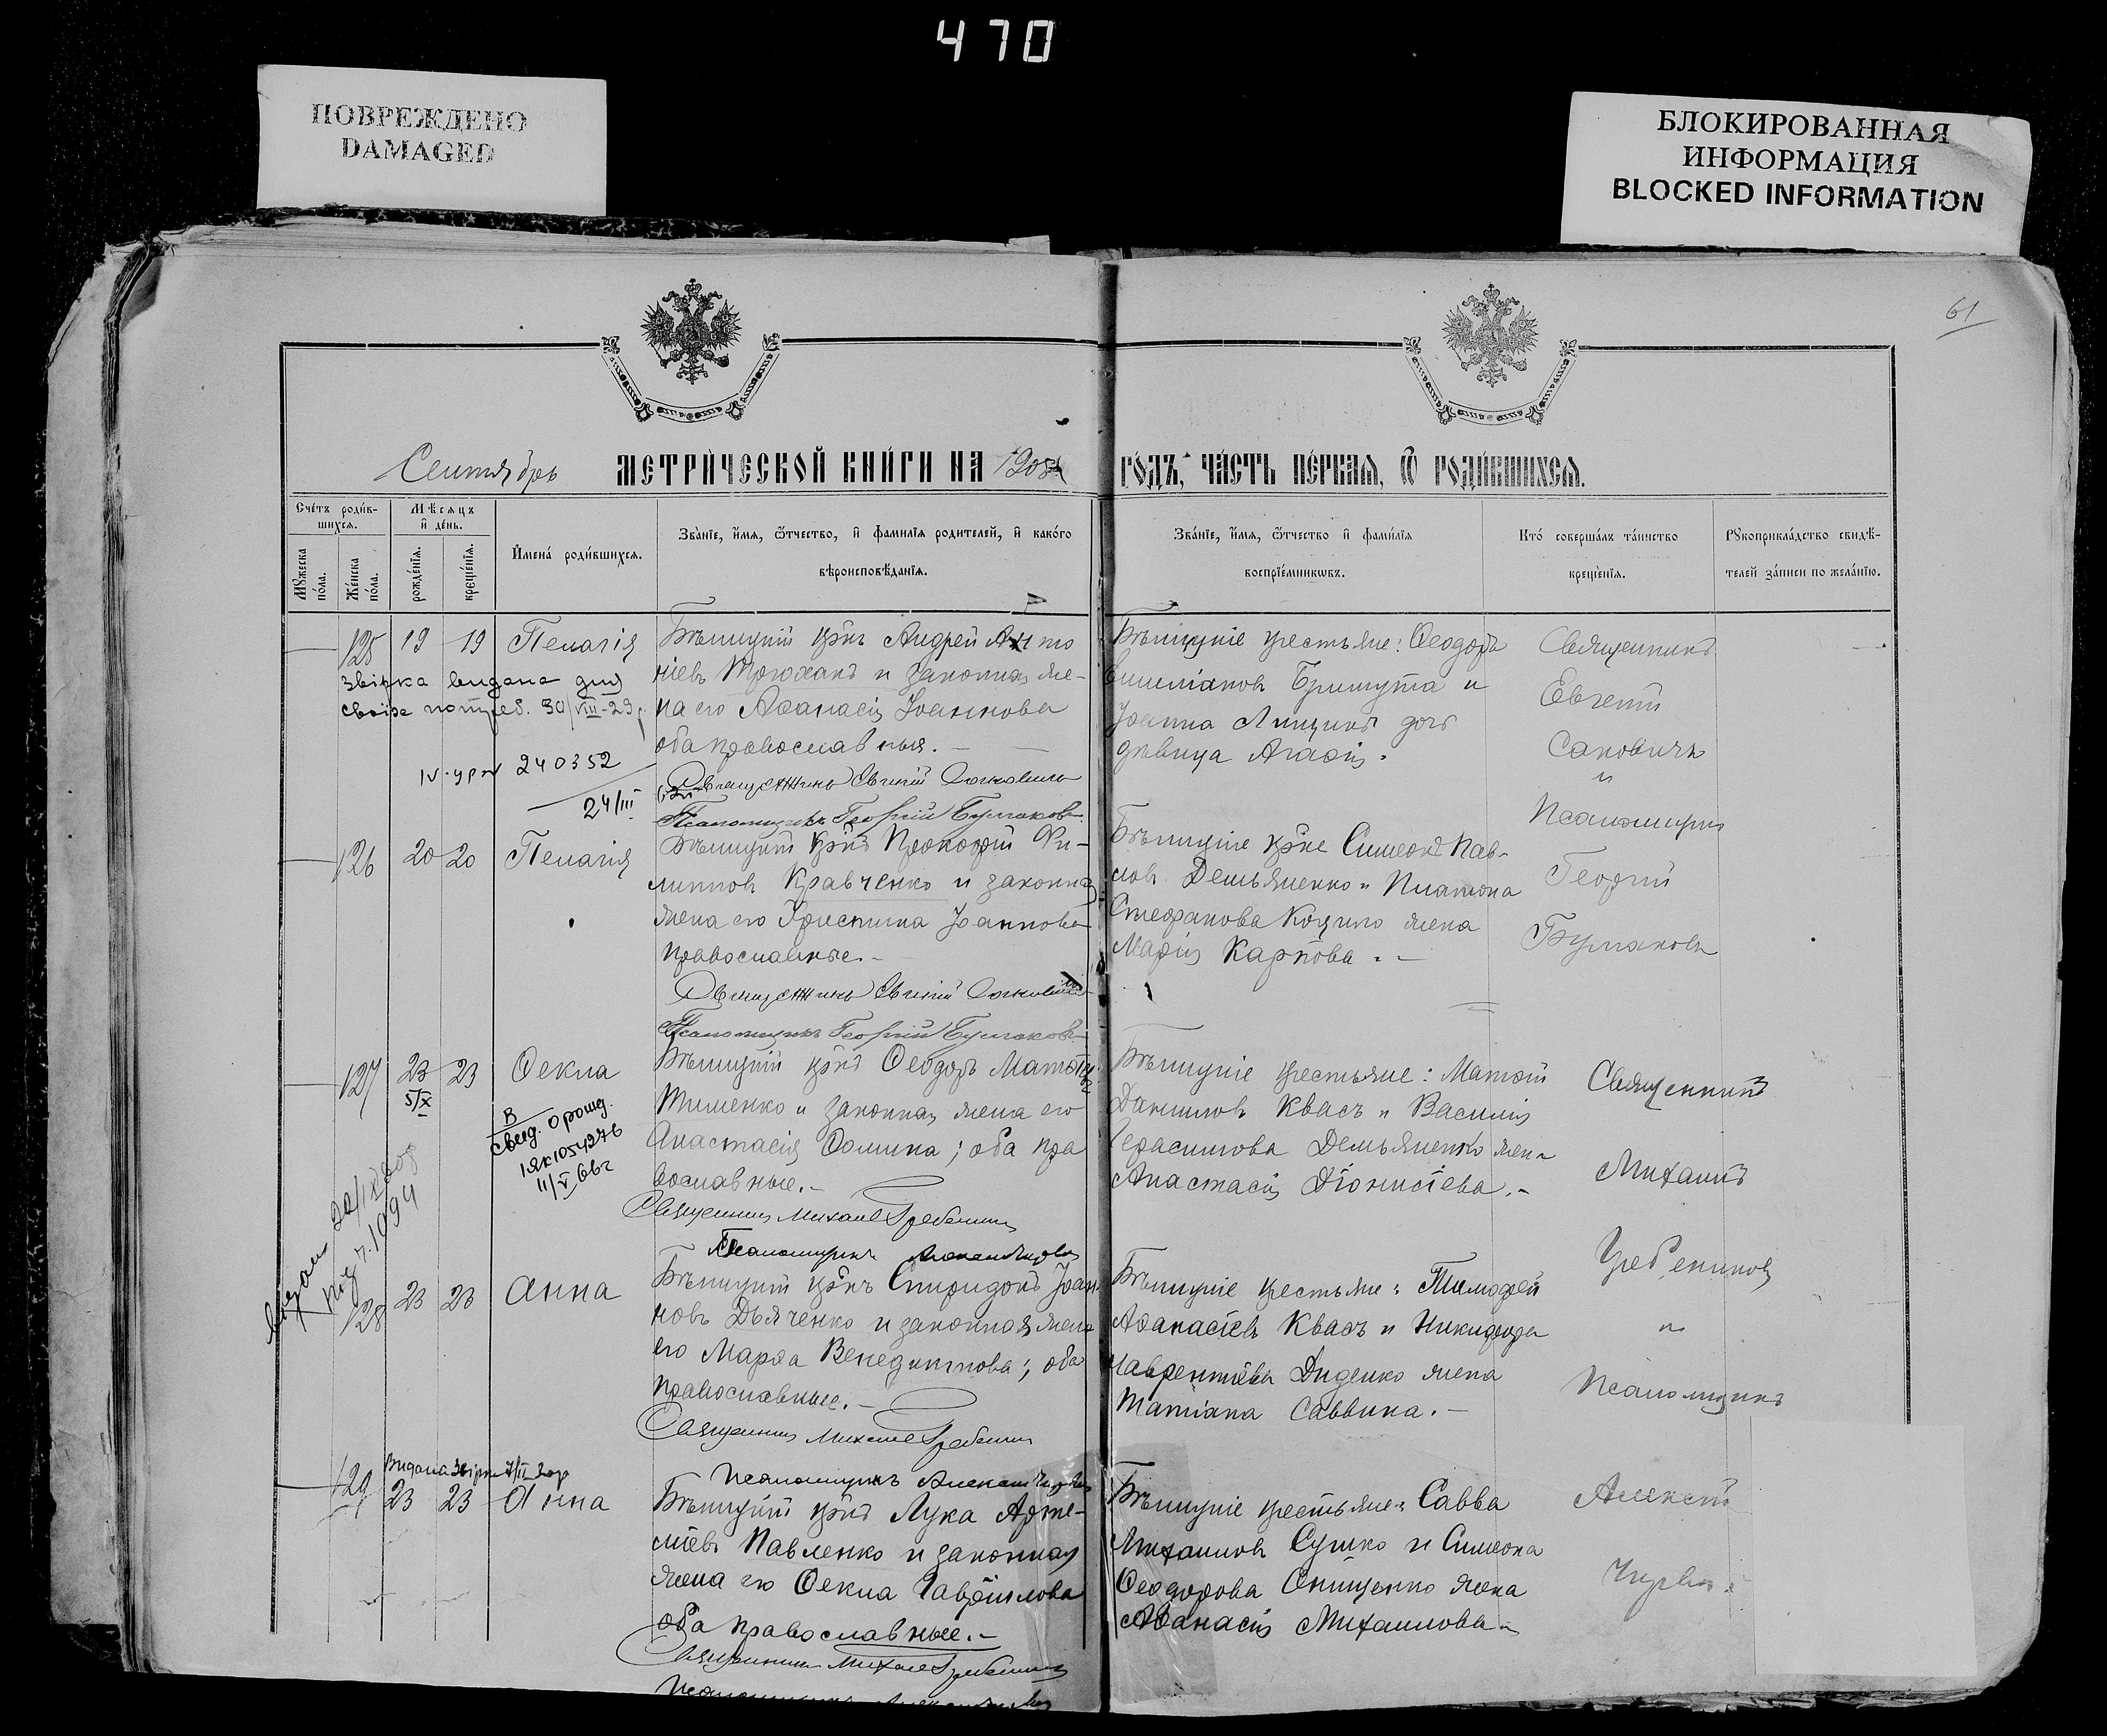 470
ПОВРЕЖДЕНО
DAMAGED
БЛОКИРОВАННАЯ
ИНФОРМАЦИЯ
BLOCKED INFORMATION
61
Сентябрь МЕТРИЧЕСКОЙ КНИГИ НА 1908 ГОДЪ, ЧАСТЬ ПЕРВАЯ, Ѿ РОДИВШИХСЯ.
Счетъ родив-
шихся.
Мужеска
пола.
Женска
пола.
Мѣсяцъ
и день.
рожденїя.
крещенїя.
Имена родившихся.
Званїе, имя, ѿтчество, и фамилїя родителей, и какого
вѣроисповѣданїя.
Званїе, имя, ѿтчество и фамилїя
воспрїемникѡвъ.
Кто совершалъ таинство
крещенїя.
Рꙋкоприкладство свидѣ-
телей записи по желанїю.
125 19 19 Пелагія
звірка видана для
своїх потреб. 30/VIII-29р.
240352
24/III
крнъ Андрей Анто
ніевъ Трюханъ и законная же-
на его Аѳанасія Іоаннова
оба православныя.
Священникъ Евгеній Сакович
Псаломщикъ Георгій Булаковъ
крестьяне: Ѳеодоръ
и
Іоанна дочь
дѣвица Агаѳія.
Священникъ
Евгеній
Саковичъ
и
Псаломщикъ
Георгій
Булаковъ
126 20 20 Пелагія
крнъ Прокофій Фи-
липповъ Кравченко и законная
жена его Христина Іоаннова
православные.-
Священникъ Евгеній Сакович
Псаломщикъ Георгій Булаковъ
крне Симеонъ Пав-
ловъ Демьяненко и Платона
Стефанова Коцило жена
Марія Карпова.-
127 23 23 Ѳекла
5/X
В
свид. о рожд.
1ЯК1054276
11/V 66г
крнъ Ѳеодоръ Матѳіевъ
Тименко и законная жена его
Анастасія Ѳомина; оба пра
вославные.-
Священникъ Михаил Гребенник
Псаломщикъ
крестьяне: Матѳій
Даниловъ Квасъ и Василія
Герасимова Демьяненко жена
Анастасія Діонисіева.-
Священникъ
Михаилъ
Гребениковъ
и
Псаломщикъ
Алексѣй
128 23 23 Анна
крнъ Спиридонъ Іоан
новъ Дьяченко и законная жена
его Марѳа Венедиктова; оба
православные.-
Священникъ Михаил Гребенник
Псаломщикъ
крестьяне: Тимофей
Аѳанасіевъ Квасъ и Никифора
Лаврентіева Диденко жена
Татіана Саввина.-
129 23 23 Анна
крнъ Лука Арте-
міевъ Павленко и законная
жена его Ѳекла Гавріилова
оба православные.-
Священникъ Михаил Гребенник
крестьяне: Савва
Михаиловъ Сушко и Симеона
Ѳеодорова Онищенко жена
Аѳанасія Михаилова-